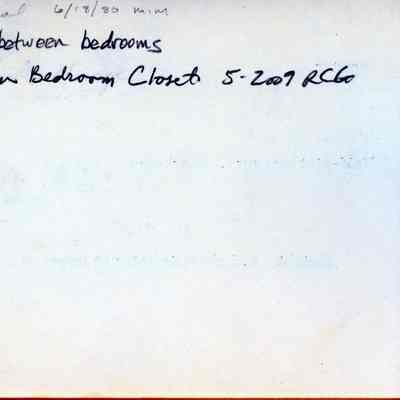 6/18/80 m.m
between bedrooms
Bedroom Closet 5-2009 RCGo